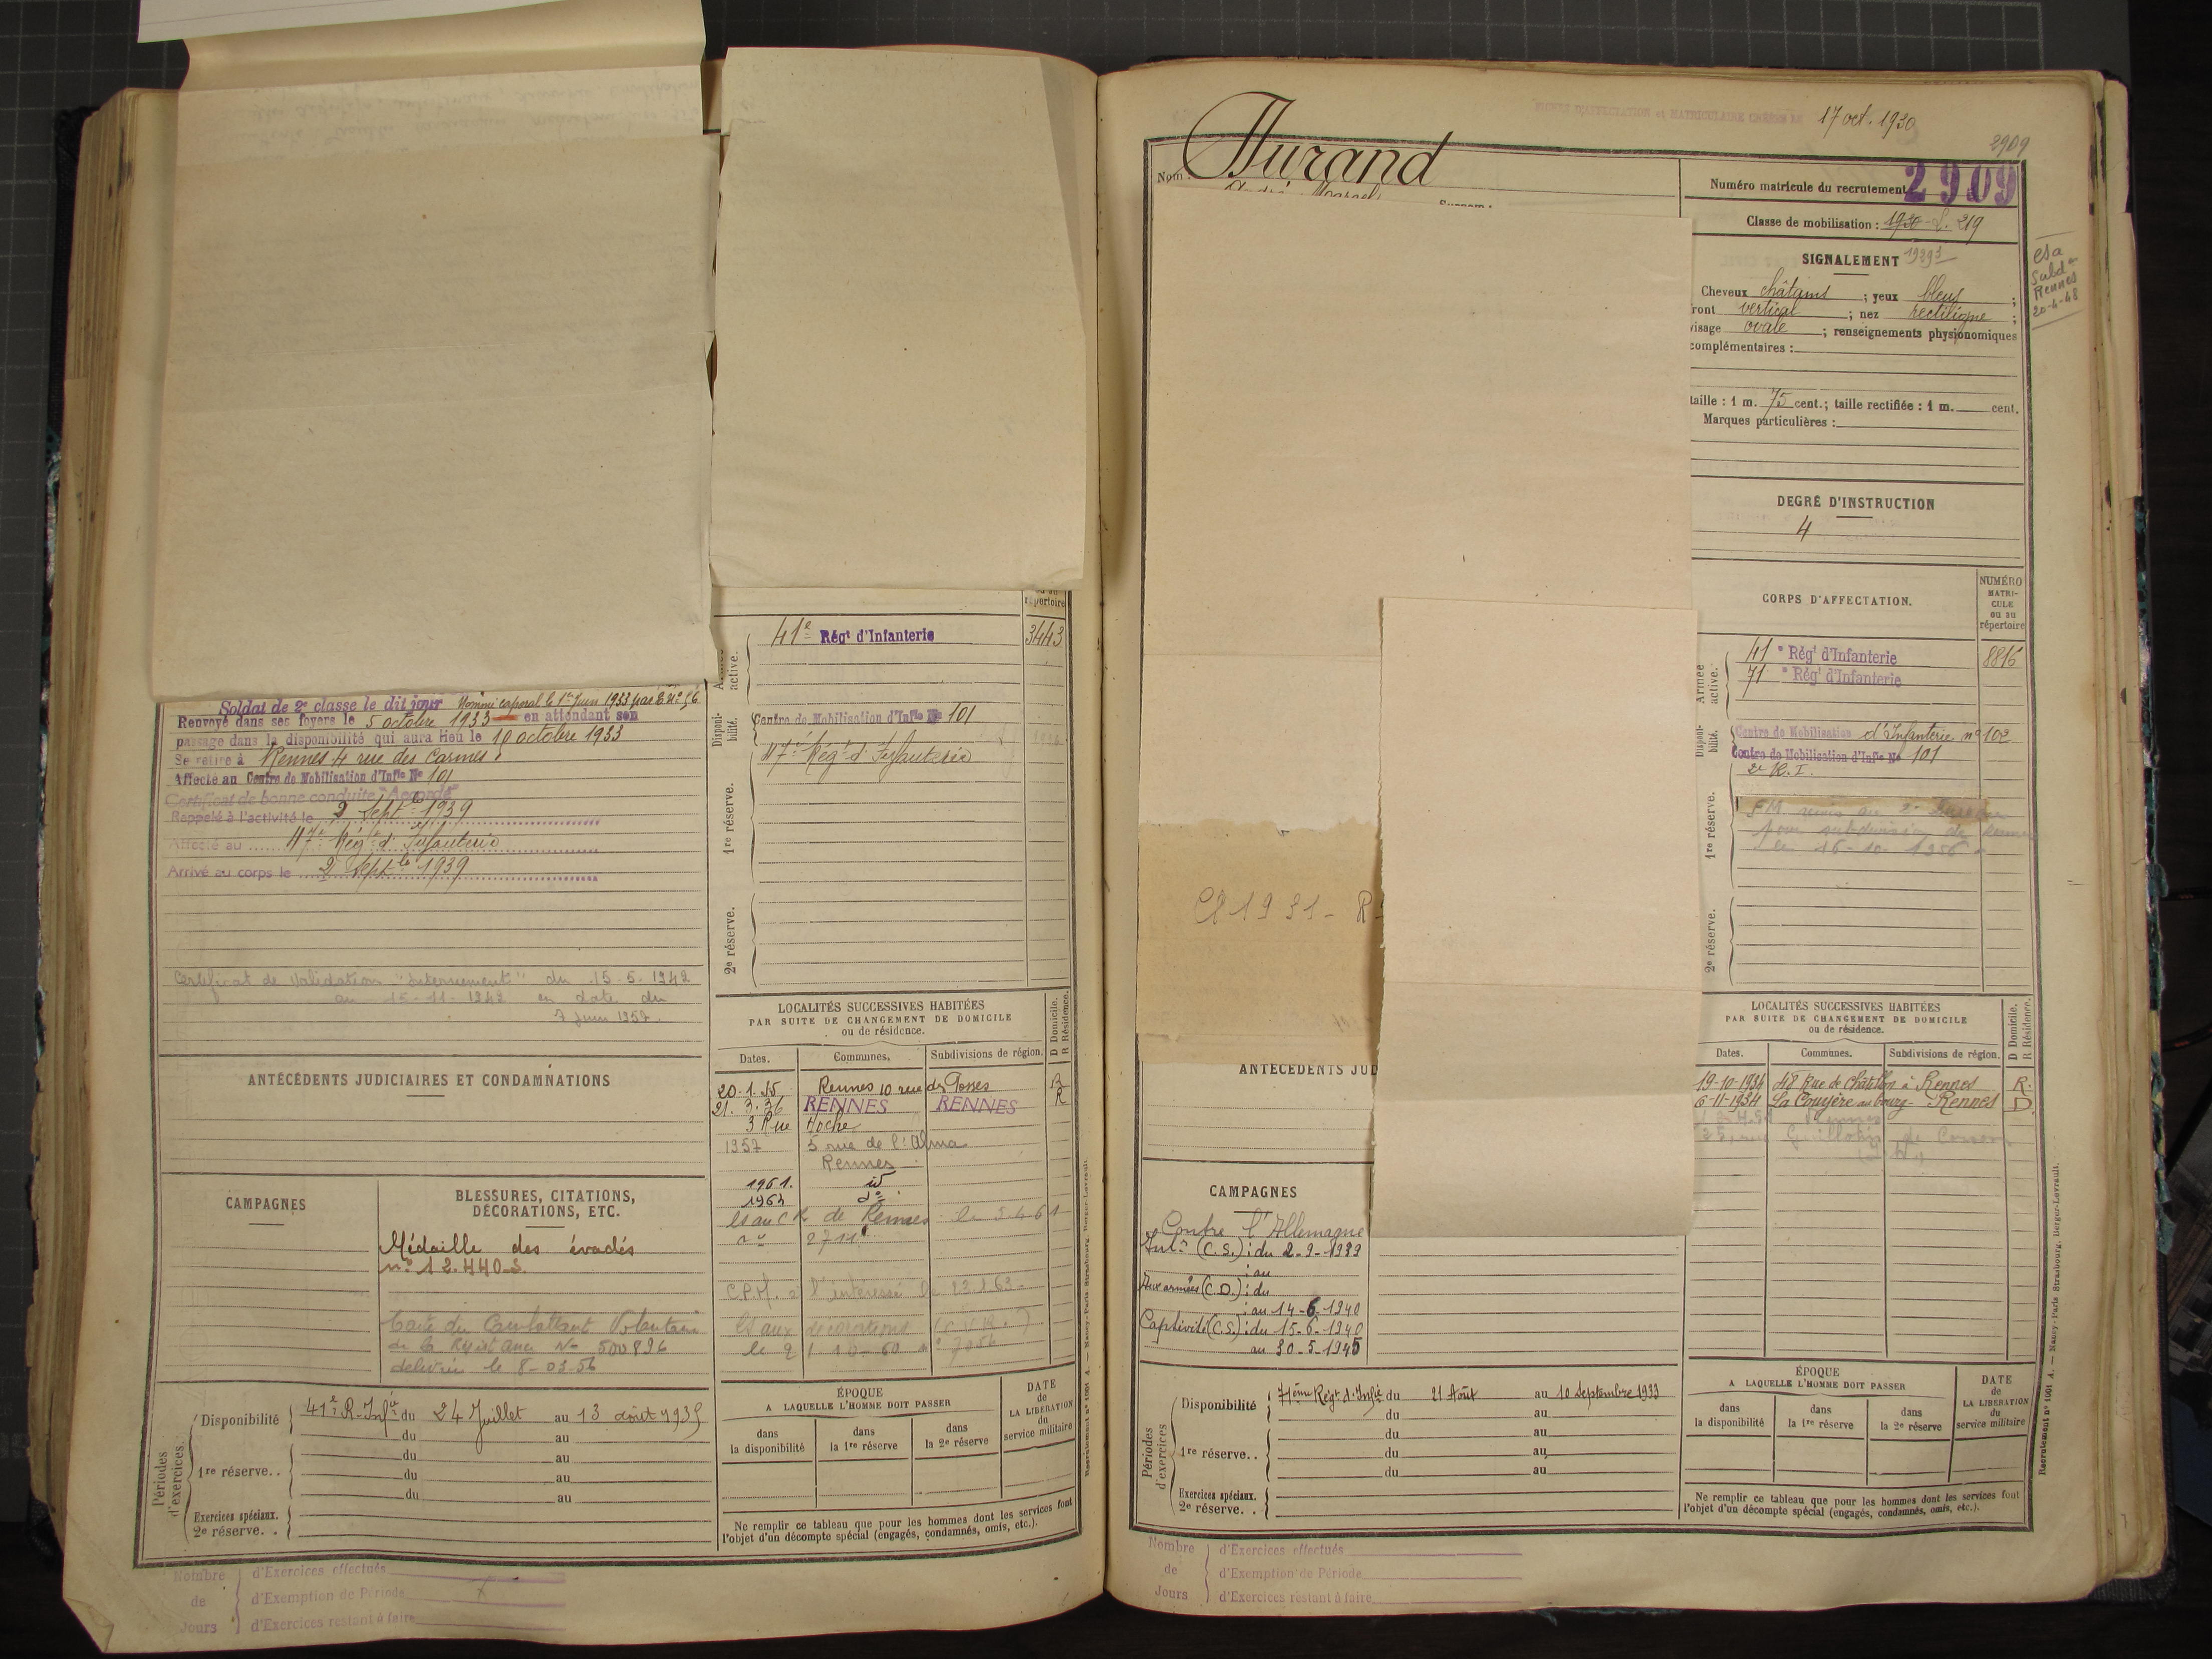 41e Régt d'Infanterie 3443
répertoire
Armée active.
Soldat de 2e classe le dit jour Nommé caporal le 1er Juin 1933
Renvoyé dans ses foyers le 5 octobre 1933 en attendant son
passage dans la disponibilité qui aura lieu le 10 octobre 1933
Se retire à Rennes 4 rue des Carmes
Affecté au Centre de Mobilisation d'Infie No 101
Certificat de bonne conduite "Accordé"
Rappelé à l'activité le 2 Septbre 1939
Affecté au 117e Régt d'Infanterie
Arrivé au corps le 2 Septbre 1939
Certificat de Validation "Internement" du 15-5-1942
au 15-11-1942 en date du
7 Juin 1957.
Disponibilité.
Centre de Mobilisation d'Infie No 101
117e Régt d'Infanterie
1re réserve.
2e réserve.
ANTÉCÉDENTS JUDICIAIRES ET CONDAMNATIONS
CAMPAGNES
BLESSURES, CITATIONS,
DÉCORATIONS, ETC.
Médaille des évadés
no 12.440.S.
Carte du Combattant Volontaire
de la Résistance No
délivrée le 8-03-56
LOCALITÉS SUCCESSIVES HABITÉES
PAR SUITE DE CHANGEMENT DE DOMICILE
ou de résidence.
D Domicile.
R Résidence.
Dates. Communes, Subdivisions de région.
20.1.35 Rennes 10 rue des Fossés R
21.3.36 RENNES RENNES R
3 Rue Hoche
1957 5 rue de l'Alma
Rennes
1961. id
1962 do
de Rennes le 5.4.61
2711
C.P.M. à l'intéressé
Périodes d'exercices.
Disponibilité 41e R. Infie du 24 Juillet au 13 août 1935
du au
1re réserve.. du au
du au
du au
Exercices spéciaux.
2e réserve..
ÉPOQUE
A LAQUELLE L'HOMME DOIT PASSER
DATE
de
LA LIBÉRATION
du
service militaire
dans
la disponibilité
dans
la 1re réserve
dans
la 2e réserve
Ne remplir ce tableau que pour les hommes dont les services font
l'objet d'un décompte spécial (engagés, condamnés, omis, etc.).
Recrutement no 1001 A. — Nancy-Paris-Strasbourg, Berger-Levrault.
Nombre
de
Jours
d'Exercices effectués
d'Exemption de Période
d'Exercices restant à faire
FICHES D'AFFECTATION et MATRICULAIRE CRÉÉES LE 17 oct. 1930
2909
Nom : Durand
André Marcel Surnom :
Numéro matricule du recrutement 2909
Classe de mobilisation : 1930 219
SIGNALEMENT
Cheveux châtains ; yeux bleus ;
front vertical ; nez rectiligne ;
visage ovale ; renseignements physionomiques
complémentaires :
taille : 1 m. 75 cent.; taille rectifiée : 1 m. cent.
Marques particulières :
Subdon
Rennes
20-4-48
DEGRÉ D'INSTRUCTION
4
CORPS D'AFFECTATION.
NUMÉRO
MATRI-
CULE
ou au
répertoire
Armée active.
41e Régt d'Infanterie 8816
71e Régt d'Infanterie
Disponibilité.
Centre de Mobilisation d'Infanterie no 102
Centre de Mobilisation d'Infie No 101
2e R.I.
1re réserve.
pour subdivision de Rennes
le 16-10-1956
2e réserve.
Cl 1931 - R
ANTÉCÉDENTS JUD
CAMPAGNES
Contre l'Allemagne
Intr (C.S.) : du 2-9-1939
: au
Aux armées (C.D.) : du
: au 14-6-1940
Captivité (C.S.) : du 15-6-1940
au 30-5-1945
LOCALITÉS SUCCESSIVES HABITÉES
PAR SUITE DE CHANGEMENT DE DOMICILE
ou de résidence.
D Domicile.
R Résidence.
Dates. Communes. Subdivisions de région.
19-10-1934 Rue de Châtillon à Rennes R.
6-11-1934 La Couyère au bourg - Rennes D.
Périodes d'exercices
Disponibilité 71ème Régt d'Infie du 21 Août au 10 Septembre 1933
du au
1re réserve.. du au
du au
du au
Exercices spéciaux.
2e réserve..
ÉPOQUE
A LAQUELLE L'HOMME DOIT PASSER
DATE
de
LA LIBÉRATION
du
service militaire
dans
la disponibilité
dans
la 1re réserve
dans
la 2e réserve
Ne remplir ce tableau que pour les hommes dont les services font
l'objet d'un décompte spécial (engagés, condamnés, omis, etc.).
Recrutement no 1001 A. — Nancy-Paris-Strasbourg, Berger-Levrault.
Nombre
de
Jours
d'Exercices effectués
d'Exemption de Période
d'Exercices restant à faire